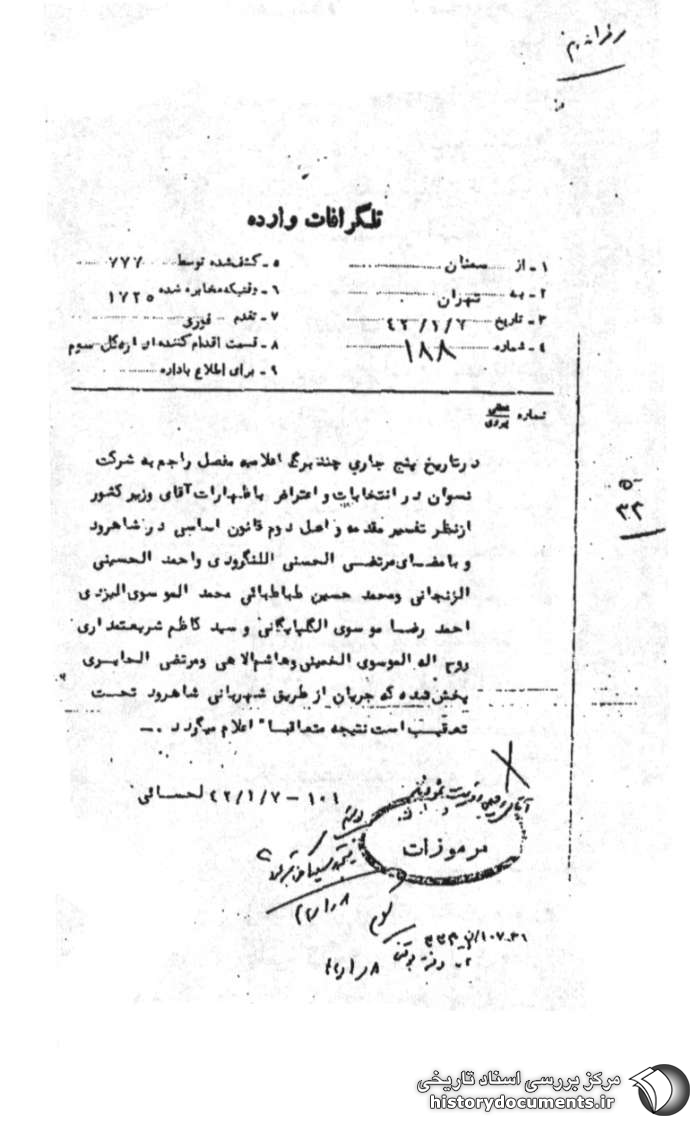 رفراندم
تلگرافات وارده
۱ - از سمنان
۲ - به تهران
۳ - تاریخ ۴۲/۱/۷
۴ - شماره ۱۸۸
۵ - کشف شده توسط ۷۷۷
۶ - وقتیکه مخابره شده ۱۷۲۵
۷ - تقدم فوری
۸ - قسمت اقدام کننده اداره کل سوم
۹ - برای اطلاع باداره
شماره عطفی پیروی
درتاریخ پنج جاری چند برگ اعلامیه مفصل راجع به شرکت
نسوان در انتخابات و اعتراض باظهارات آقای وزیر کشور
ازنظر تفسیر مقدمه و اصل دوم قانون اساسی در شاهرود
و بامضای مرتضی الحسنی اللنگرودی و احمد الحسینی
الزنجانی ومحمد حسین طباطبائی محمد الموسوی الیزدی
احمد رضا موسوی الگلپایگانی و سید کاظم شریعتمداری
روح اله الموسوی الخمینی وهاشم الاملی ومرتضی الحایری
پخش شده که جریان از طریق شهربانی شاهرود تحت
تعقیب است نتیجه متعاقبا" اعلام میگردد .-
۱۰۱ - ۴۲/۱/۷ لحسائی
مرموزات
۵
۳۲
۸ر۱ر۴۲
۸ر۱ر۴۲
مرکز بررسی اسناد تاریخی
historydocuments.ir